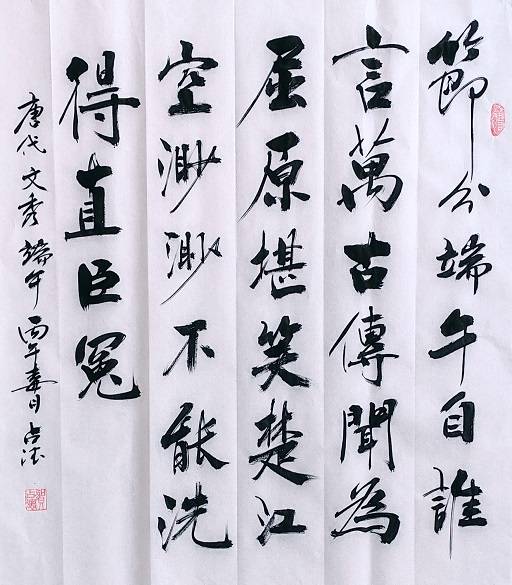 節分端午自誰
言萬古傳聞為
屈原堪笑楚江
空渺渺不能洗
得直臣冤
唐代文秀端午 丙午春日